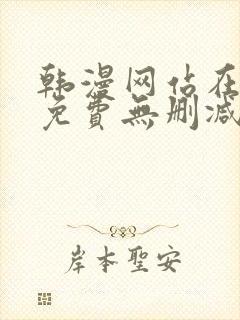 韩漫网站在
免費無删减
岸本聖安